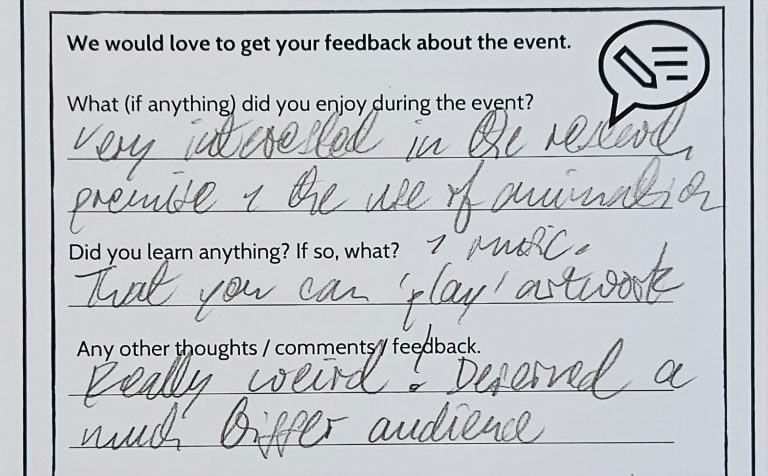 We would love to get your feedback about the event.
What (if anything) did you enjoy during the event?
Very interested in the research
premise & the use of animation
& music.
Did you learn anything? If so, what?
That you can 'play' artwork
Any other thoughts / comments / feedback.
Really weird! Deserved a
much bigger audience